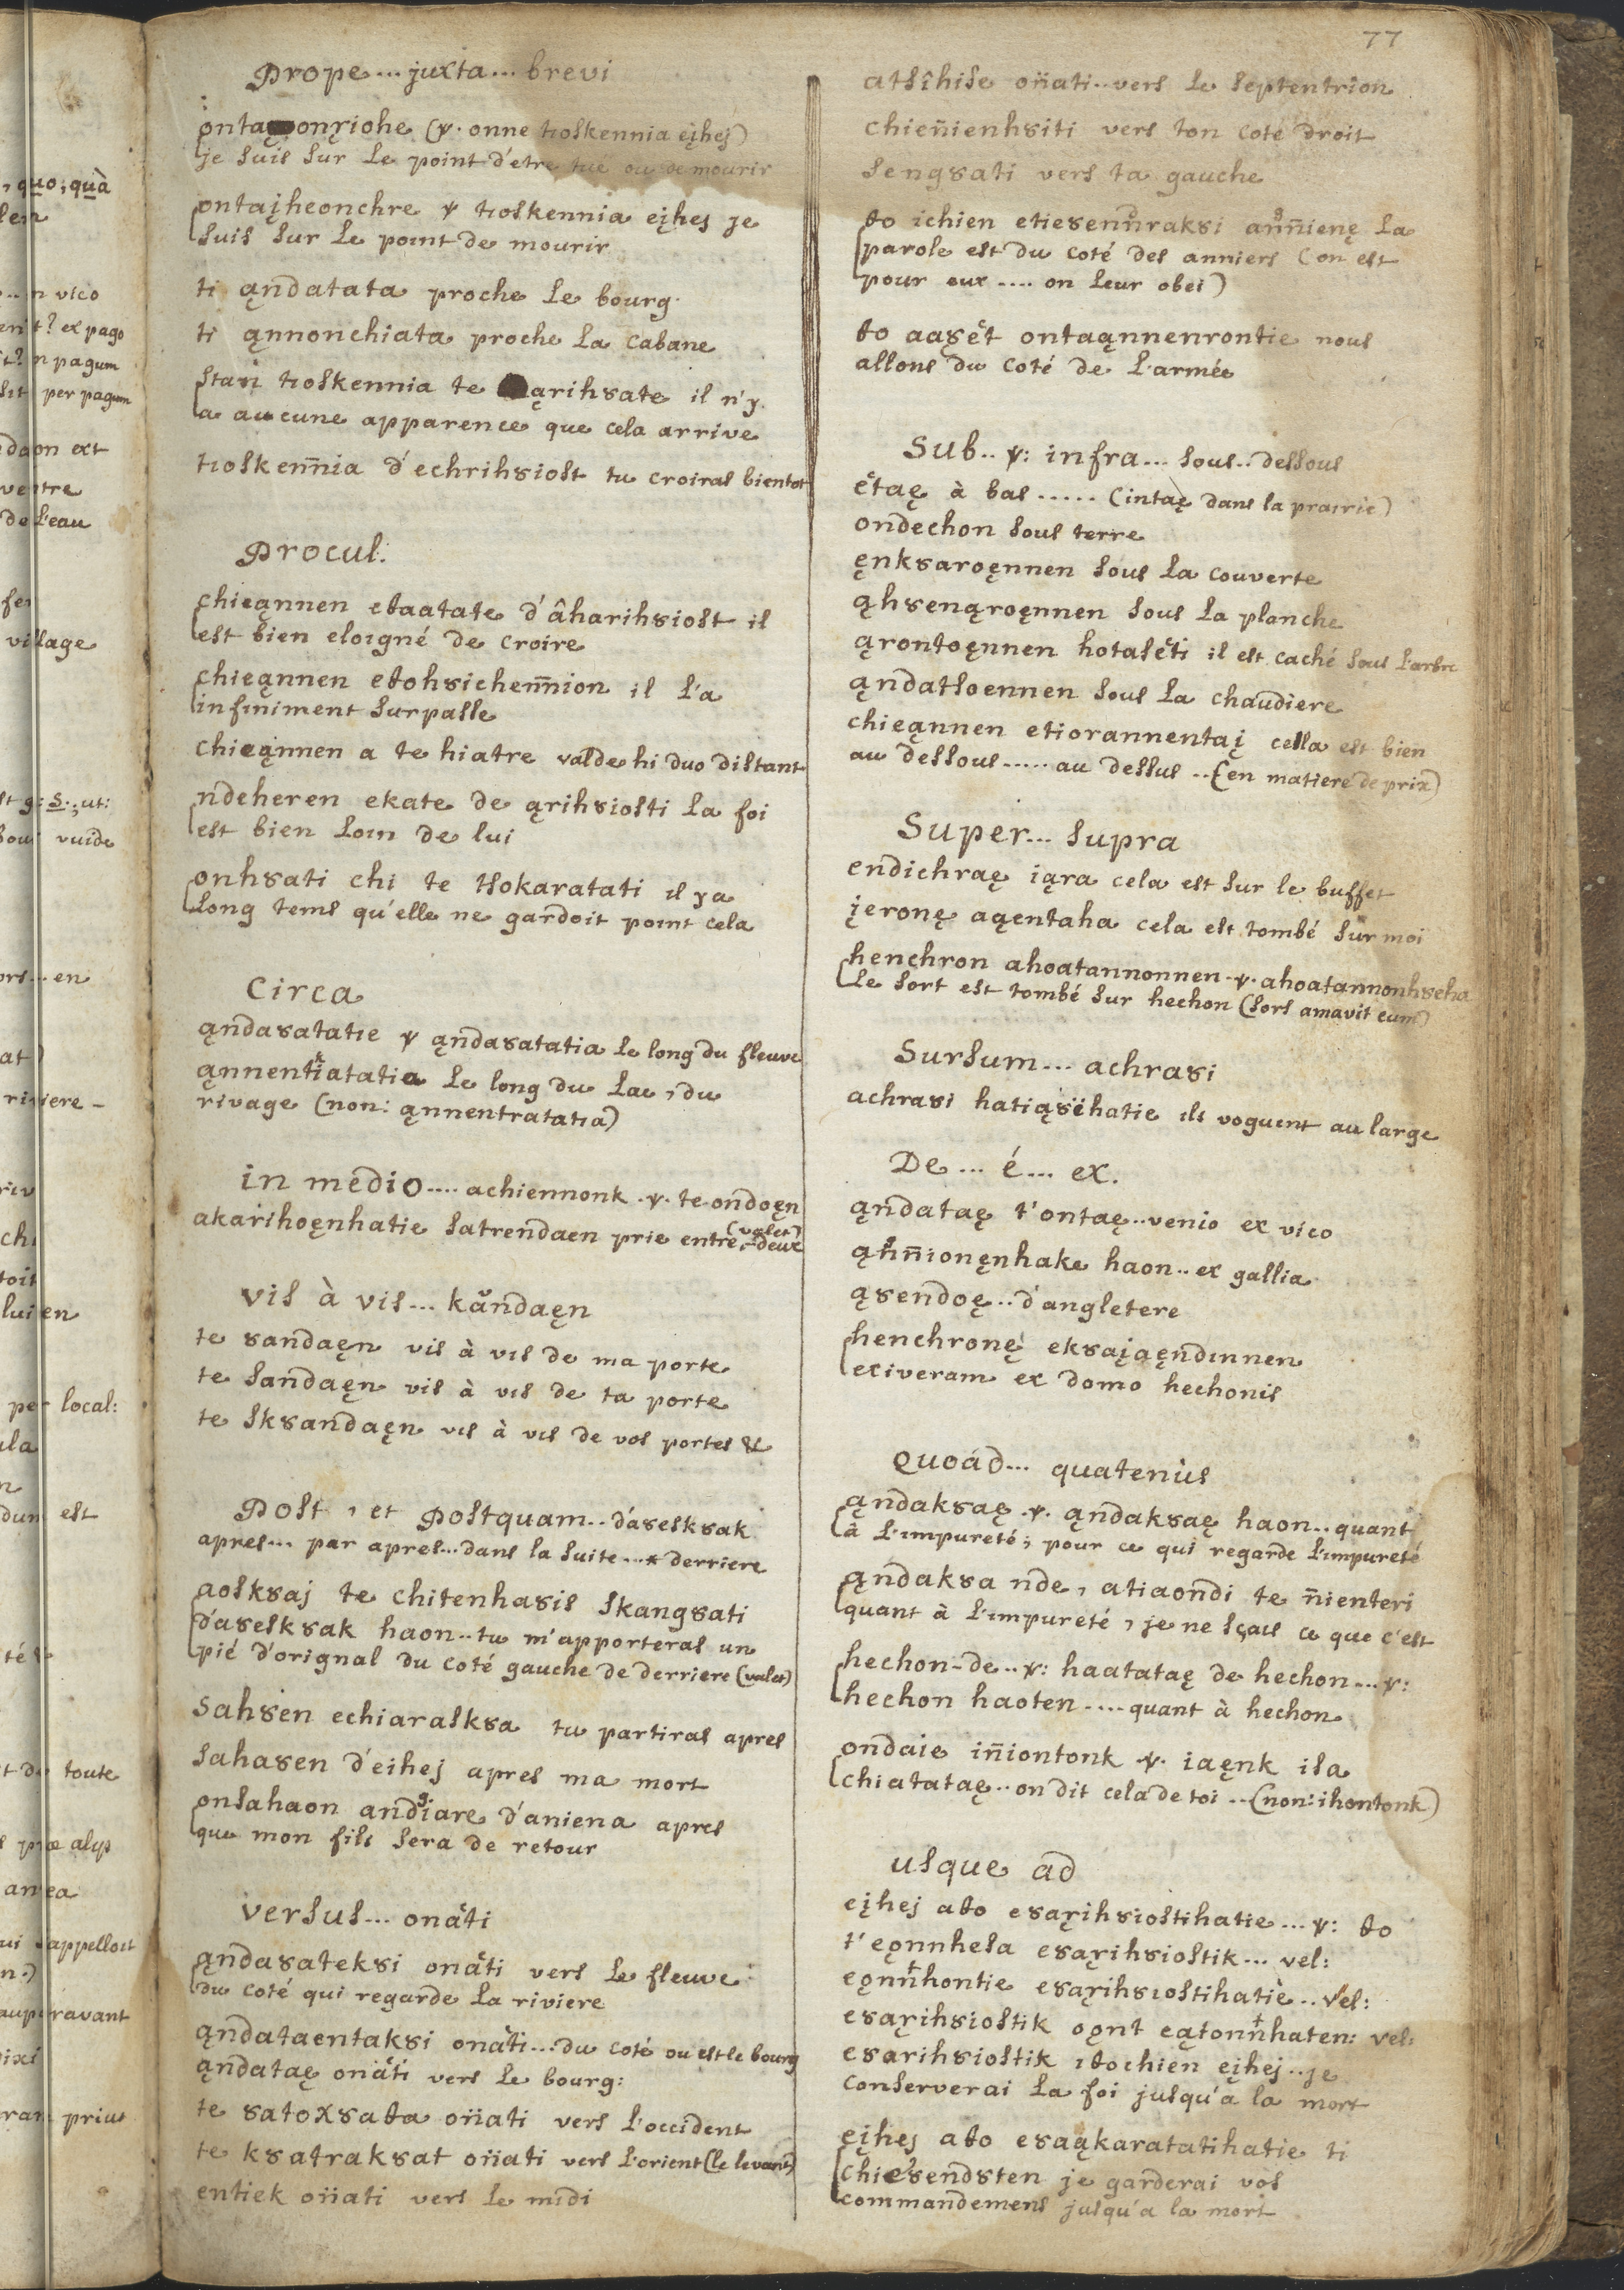 77
Prope... juxta... brevi
onta onȩiohe (v. onne tioskennia ęįhej)
je suis sur le point d'etre tué ou de mourir
ontaįheonchre v tioskennia eįhej je
suis sur le point de mourir
ti ąndatata proche le bourg.
ti ąnnonchiata proche la cabane
stan tioskennia te ąrihȣate il n'y
a aucune apparence que cela arrive
tioskennia d'echrihȣiost tu croiras bientot
Procul.
chieąnnen etaatate d'âharihȣiost il
est bien eloigné de croire
chieąnnen etohȣichennion il l'a
infiniment surpasse
chieąnnen a te hiatre valde hi duo distant
ndeheren ekate de ąrihȣiosti la foi
est bien loin de lui
onhȣati chi te tsokaratati il y a
long tems qu'elle ne gardoit point cela
Circa
ąndaȣatatie v ąndaȣatatia le long du fleuve
ąnnentkiatatia le long du lac, du
rivage (non: ąnnentratatia)
in medio.... achiennonk .v. te ondoęn
akarihoęnhatie satrendaen prie entre-deux (valet)
vis à vis... kandaęn
te ȣandaęn vis à vis de ma porte
te sandaęn vis à vis de ta porte
te skȣandaęn vis à vis de vos portes &
Post, et Postquam.. d'aȣeskȣak
apres... par apres... dans la suite...* derriere
aoskȣaj te chitenhaȣis skangȣati
d'aȣeskȣak haon.. tu m'apporteras un
pié d'orignal du coté gauche de derriere (valet)
sahȣen echiaraskȣa tu partiras apres
sahaȣen d'eihej apres ma mort
onsahaon andȣiare d'aniena apres
que mon fils sera de retour
versus... onati
ąndaȣatekȣi onati vers le fleuve
du coté qui regarde la riviere
ąndataentakȣi onati... du coté ou est le bourg
ąndataę onati vers le bourg:
te ȣatoxȣata onati vers l'occident
te kȣatrakȣat onati vers l'orient (le levant)
entiek onati vers le midi
atsîhise onati.. vers le septentrion
chienienhȣiti vers ton coté droit
sengȣati vers ta gauche
to ichien etieȣennrakȣi annienę la
parole est du coté des anniers (on est
pour eux .... on leur obei)
to aaȣet ontaąnnenrontie nous
allons du coté de l'armée
Sub.. v: infra... sous.. dessous
etaę à bas ..... (intaę dans la prairie)
ondechon sous terre
ęnkȣaroęnnen sous la couverte
ąhȣenąroęnnen sous la planche
ąrontoęnnen hotaseti il est caché sous l'arbre
ąndatsoennen sous la chaudiere
chieąnnen etiorannentaį cella est bien
au dessous ..... au dessus .. (en matiere de prix)
Super... supra
endichraę iąra cela est sur le buffet
įeronę aąentaha cela est tombé sur moi
henchron ahoatannonnen .v. ahoatannonhȣeha
le sort est tombé sur hechon (sors amavit eum)
Sursum... achraȣi
achraȣi hatiąȣihatie ils voguent au large
De... é... ex.
ąndataę t'ontaę.. venio ex vico
ąnnionęnhake haon.. ex gallia
ąȣendoę.. d'angletere
henchronę ekȣaįaęndinnen
exiveram ex domo hechonis
Quoad... quatenus
ąndakȣaę .v. ąndakȣaę haon.. quant
à l'impureté; pour ce qui regarde l'impureté
ąndakȣa nde, atiaondi te nienteri
quant à l'impureté, je ne sçais ce que c'est
hechon-de.. v: haatataę de hechon... v:
hechon haoten.... quant à hechon
ondaie iniontonk .v. iaęnk isa
chiatataę.. on dit cela de toi .. (non: ihontonk)
usque ad
eįhej ato eȣaȩihȣiostihatie... v: to
t'eǫnnhesa eȣaȩihȣiostik... vel:
eǫnnhontie eȣaȩihȣiostihatie.. vel:
eȣaȩihȣiostik oǫnt eątonnhaten: vel:
eȣarihȣiostik itochien eįhej.. je
conserverai la foi jusqu'a la mort
eįhej ato eȣaąkaratatihatie ti
chieȣendȣten je garderai vos
commandemens jusqu'a la mort